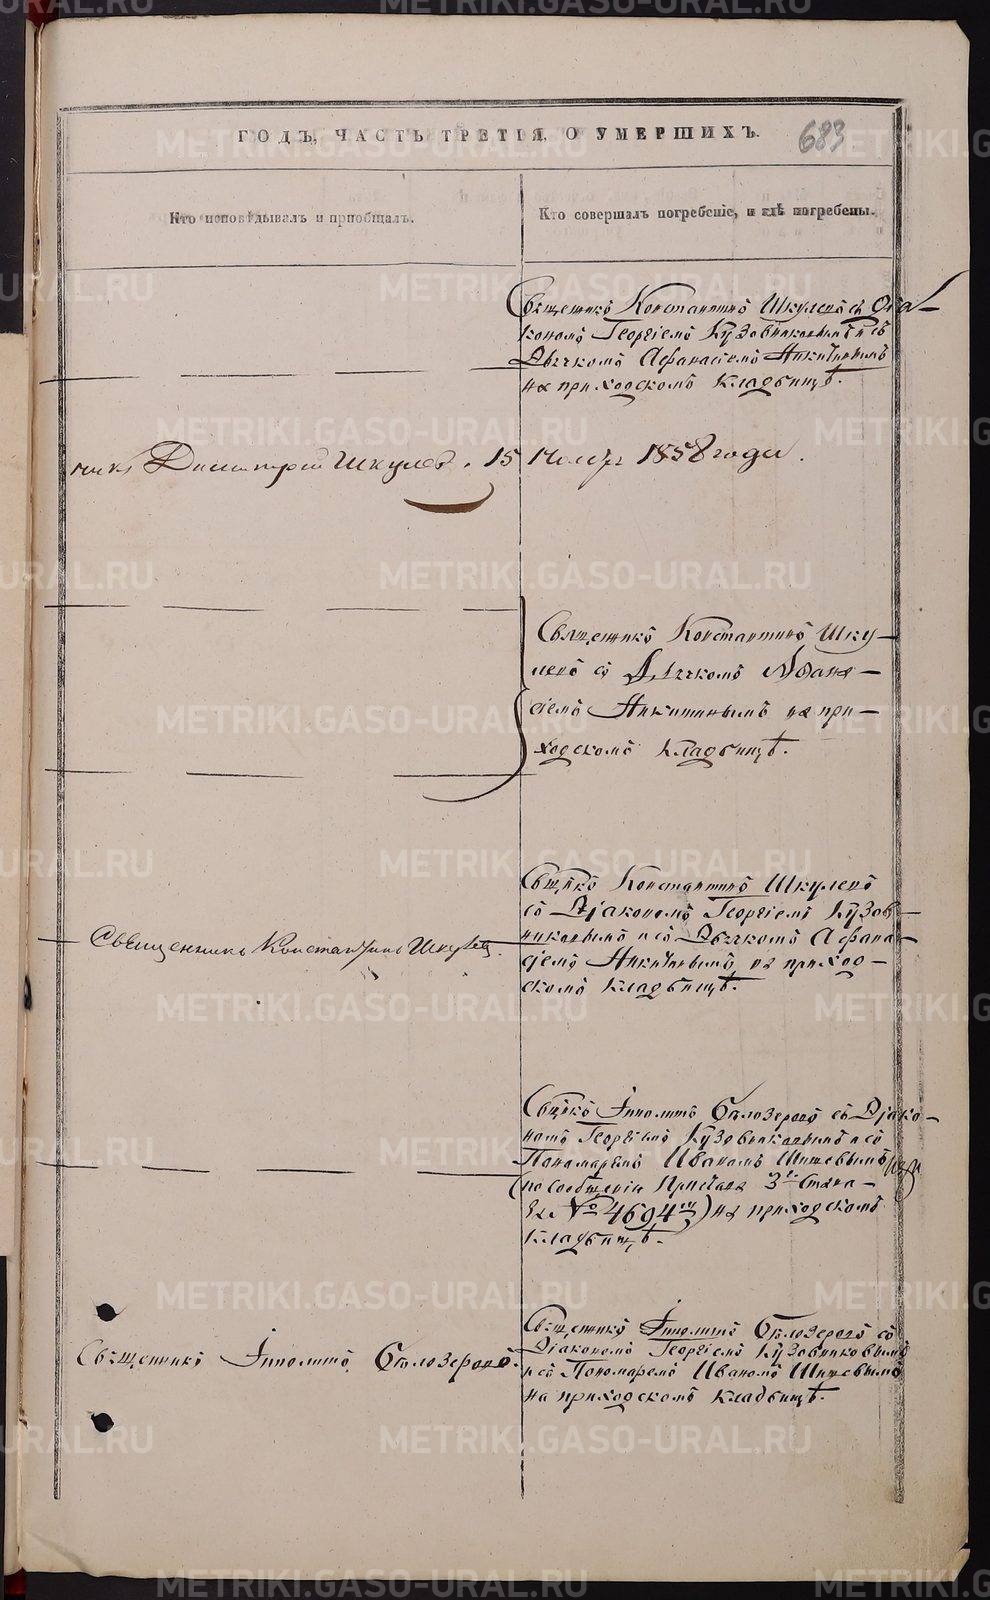 ГОДЪ, ЧАСТЬ ТРЕТІЯ, О УМЕРШИХЪ.
683
Кто исповѣдывалъ и пріобщалъ.
Кто совершалъ погребеніе, и гдѣ погребены.
Священикъ Константинъ Шкулевъ съ Діа-
кономъ Георгіемъ Кузовниковымъ и съ
Дьячкомъ Афанасіемъ Никитинымъ
на приходскомъ кладбищѣ.
никъ Димитрій Шкулевъ. 15 1858 года.
Священикъ Константинъ Шку-
левъ съ Дьячкомъ Афана-
сіемъ Никитинымъ на при-
ходскомъ кладбищѣ.
Свщ҃нкъ Константинъ Шкулевъ
съ Діакономъ Георгіемъ Кузов-
никовымъ и съ Дьячкомъ Афана-
сіемъ Никитинымъ на приход-
скомъ кладбищѣ.
Священникъ Константинъ Шкулев.
Свщ҃нкъ Іпполитъ Бѣлозеровъ съ Діако-
номъ Георгіемъ Кузовниковымъ и съ
Пономаремъ Иваномъ Шишевымъ
(по сообщенію Пристава 3й Стана
за № 4694м) на приходскомъ
кладбищѣ.
Священикъ Іпполитъ Бѣлозеровъ.
Священикъ Іпполитъ Бѣлозеровъ съ
Діакономъ Георгіемъ Кузовниковымъ
и съ Пономаремъ Иваномъ Шишевымъ
на приходскомъ кладбищѣ.
METRIKI.GASO-URAL.RU